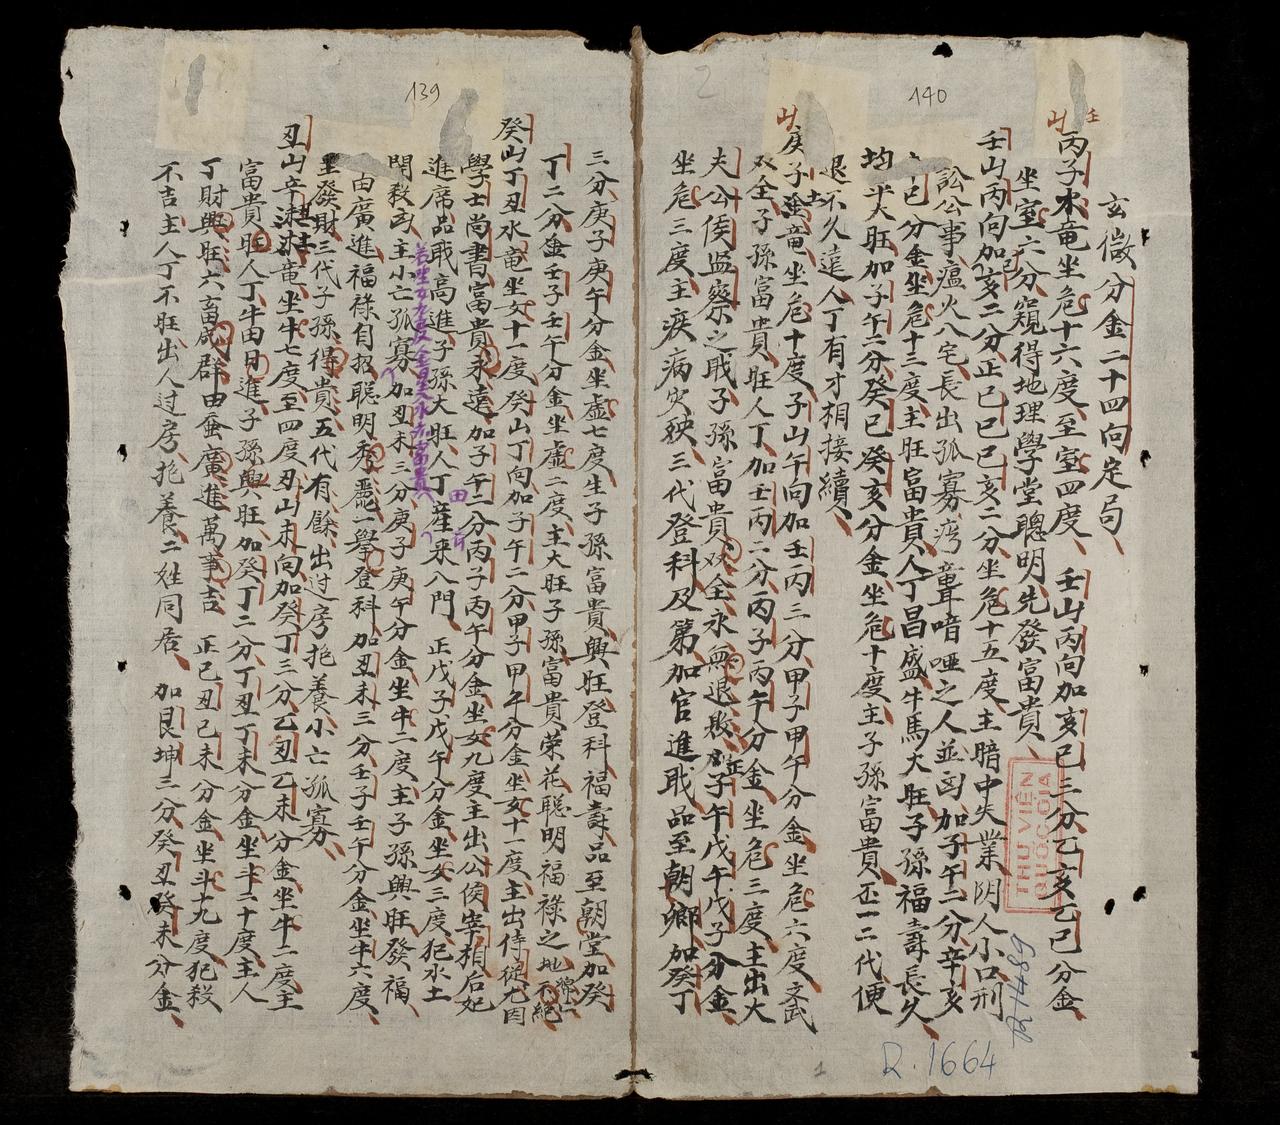 140
玄微分金二十四向定局
丙子水竜坐危十六度至室四度 壬山丙向加亥巳三分乙亥乙巳分金
坐室六分窺得地理學堂聰明先發富貴
壬山丙向加亥二分正巳巳巳亥二分坐危十五度主暗中失業陰人小口刑
訟公事瘟火八宅長出孤寡 聾喑啞之人並凶加子午二分辛亥
巳分金坐危十三度主旺富貴人丁昌盛牛馬大旺子孫福壽長久
均平大旺加子午二分癸巳癸亥分金坐危十度主子孫富貴 一二代便
退不久遠人丁有才相接續
庚子 竜坐危十度子山午向加壬丙三分甲子甲午分金坐危六度文武
双全子孫富貴旺人丁加壬丙二分丙子丙午分金坐危三度主出大
夫公侯監察之職子孫富貴双全永無退敗 子午戊午戊子分金
坐危三度主疾病災殃三代登科及第加官進職品至朝鄉加癸丁
139
三分庚子庚午分金坐虛七度生子孫富貴興旺登科福壽品至朝堂加癸
丁二分金壬子壬午分金坐虛二度主大旺子孫富貴榮花聰明福祿之地 不絕
癸山丁丑水竜坐女十一度癸山丁向加子午二分甲子甲午分金坐女十一度主出侍從尤因
學士尚書富貴永遠加子午二分丙子丙午分金坐女九度主出公侯宰相后妃
進席品職高進子孫大旺人丁產來八門 正戊子戊午分金坐女三度犯水土
若坐女九度金星永 富貴
田
開殺凶主小亡孤寡加丑未三分庚子庚午分金坐牛二度主子孫興旺發福
由廣進福祿自招聰明秀麗一舉登科加丑未三分壬子壬午分金坐牛六度
里發財三代子孫得貴五代有餘出过房抱養小亡孤寡
丑山辛 竜坐牛七度至四度丑山未向加癸丁三分乙丑乙未分金坐牛二度主
富貴旺人丁牛由日進子孫興旺加癸丁二分丁丑丁未分金坐斗二十度主人
丁財興旺六畜成群由蚕廣進萬事吉 正己丑己未分金坐斗十九度犯殺
不吉主人丁不旺出人过房抱養二姓同居 加艮坤三分癸丑癸未分金
THƯ VIỆN
QUỐC GIA
R 1489
R.1664